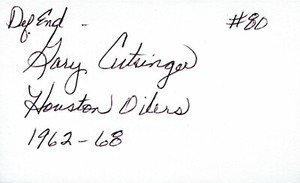 Def End - #80
Gary Cutsinger
Houston Oilers
1962-68